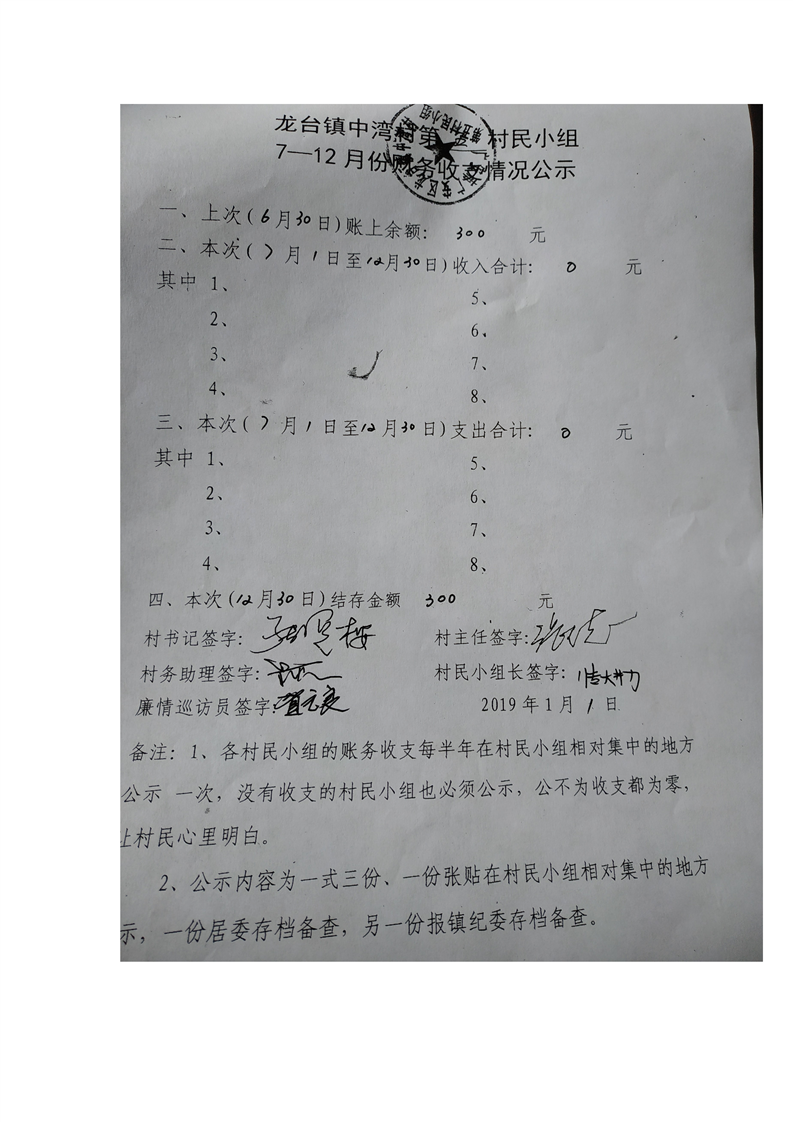 龙台镇中湾村第 村民小组
7—12月份财务收支情况公示
第五村民小组
一、上次(6月30日)账上余额: 300 元
二、本次(7月1日至12月30日)收入合计: 0 元
其中 1、 5、
2、 6、
3、 7、
4、 8、
三、本次(7月1日至12月30日)支出合计: 0 元
其中 1、 5、
2、 6、
3、 7、
4、 8、
四、本次(12月30日)结存金额 300 元
村书记签字: 村主任签字:
村务助理签字: 村民小组长签字:
廉情巡访员签字: 2019年1月1日
备注:1、各村民小组的账务收支每半年在村民小组相对集中的地方
公示 一次,没有收支的村民小组也必须公示,公不为收支都为零,
让村民心里明白。
2、公示内容为一式三份、一份张贴在村民小组相对集中的地方
示,一份居委存档备查,另一份报镇纪委存档备查。